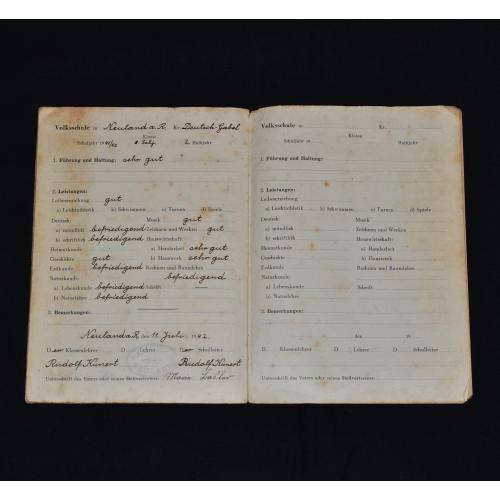 Volksschule in Neuland a. R. Kr. Deutsch-Gabel
Klasse
Schuljahr 1941/42 8. Schj. 2. Halbjahr
1. Führung und Haltung: sehr gut
2. Leistungen:
Leibeserziehung gut
a) Leichtathletik b) Schwimmen c) Turnen d) Spiele
Deutsch: Musik gut
a) mündlich befriedigend Zeichnen und Werken gut
b) schriftlich befriedigend Hauswirtschaft:
Heimatkunde a) Handarbeit sehr gut
Geschichte gut b) Hauswerk sehr gut
Erdkunde befriedigend Rechnen und Raumlehre
Naturkunde: befriedigend
a) Lebenskunde befriedigend Schrift
b) Naturlehre befriedigend
3. Bemerkungen:
Neuland a. R., den 11. Juli 1942
Der Klassenlehrer D Lehrer Der Schulleiter
Rudolf Kunert Rudolf Kunert
Unterschrift des Vaters oder seines Stellvertreters:
Volksschule in Kr.
Klasse
Schuljahr 19 Halbjahr
1. Führung und Haltung:
2. Leistungen:
Leibeserziehung
a) Leichtathletik b) Schwimmen c) Turnen d) Spiele
Deutsch: Musik
a) mündlich Zeichnen und Werken
b) schriftlich Hauswirtschaft:
Heimatkunde a) Handarbeit
Geschichte b) Hauswerk
Erdkunde Rechnen und Raumlehre
Naturkunde:
a) Lebenskunde Schrift
b) Naturlehre
3. Bemerkungen:
den 19
D Klassenlehrer D Lehrer D Schulleiter
Unterschrift des Vaters oder seines Stellvertreters: